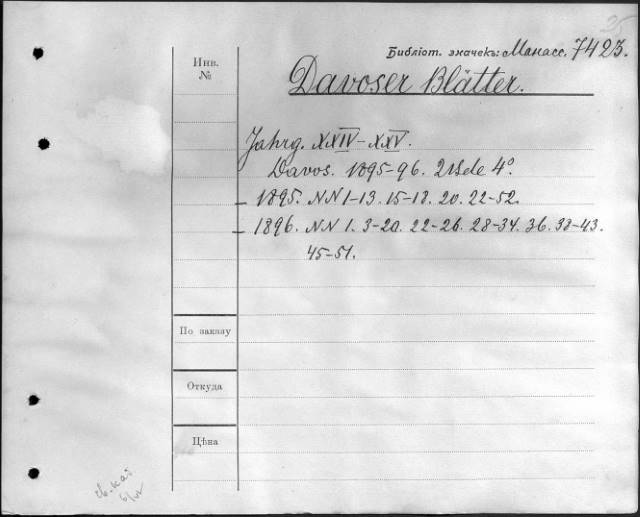 25
Библіот. значекъ: Манасс. 7423.
Инв.
№
Davoser Blätter.
Jahrg. XXIV–XXV.
Davos. 1895–96. 2 Bde 4°.
1895. NN 1–13. 15–18. 20. 22–52.
1896. NN 1. 3–20. 22–26. 28–34. 36. 38–43.
45–51.
По заказу
Откуда
Цѣна